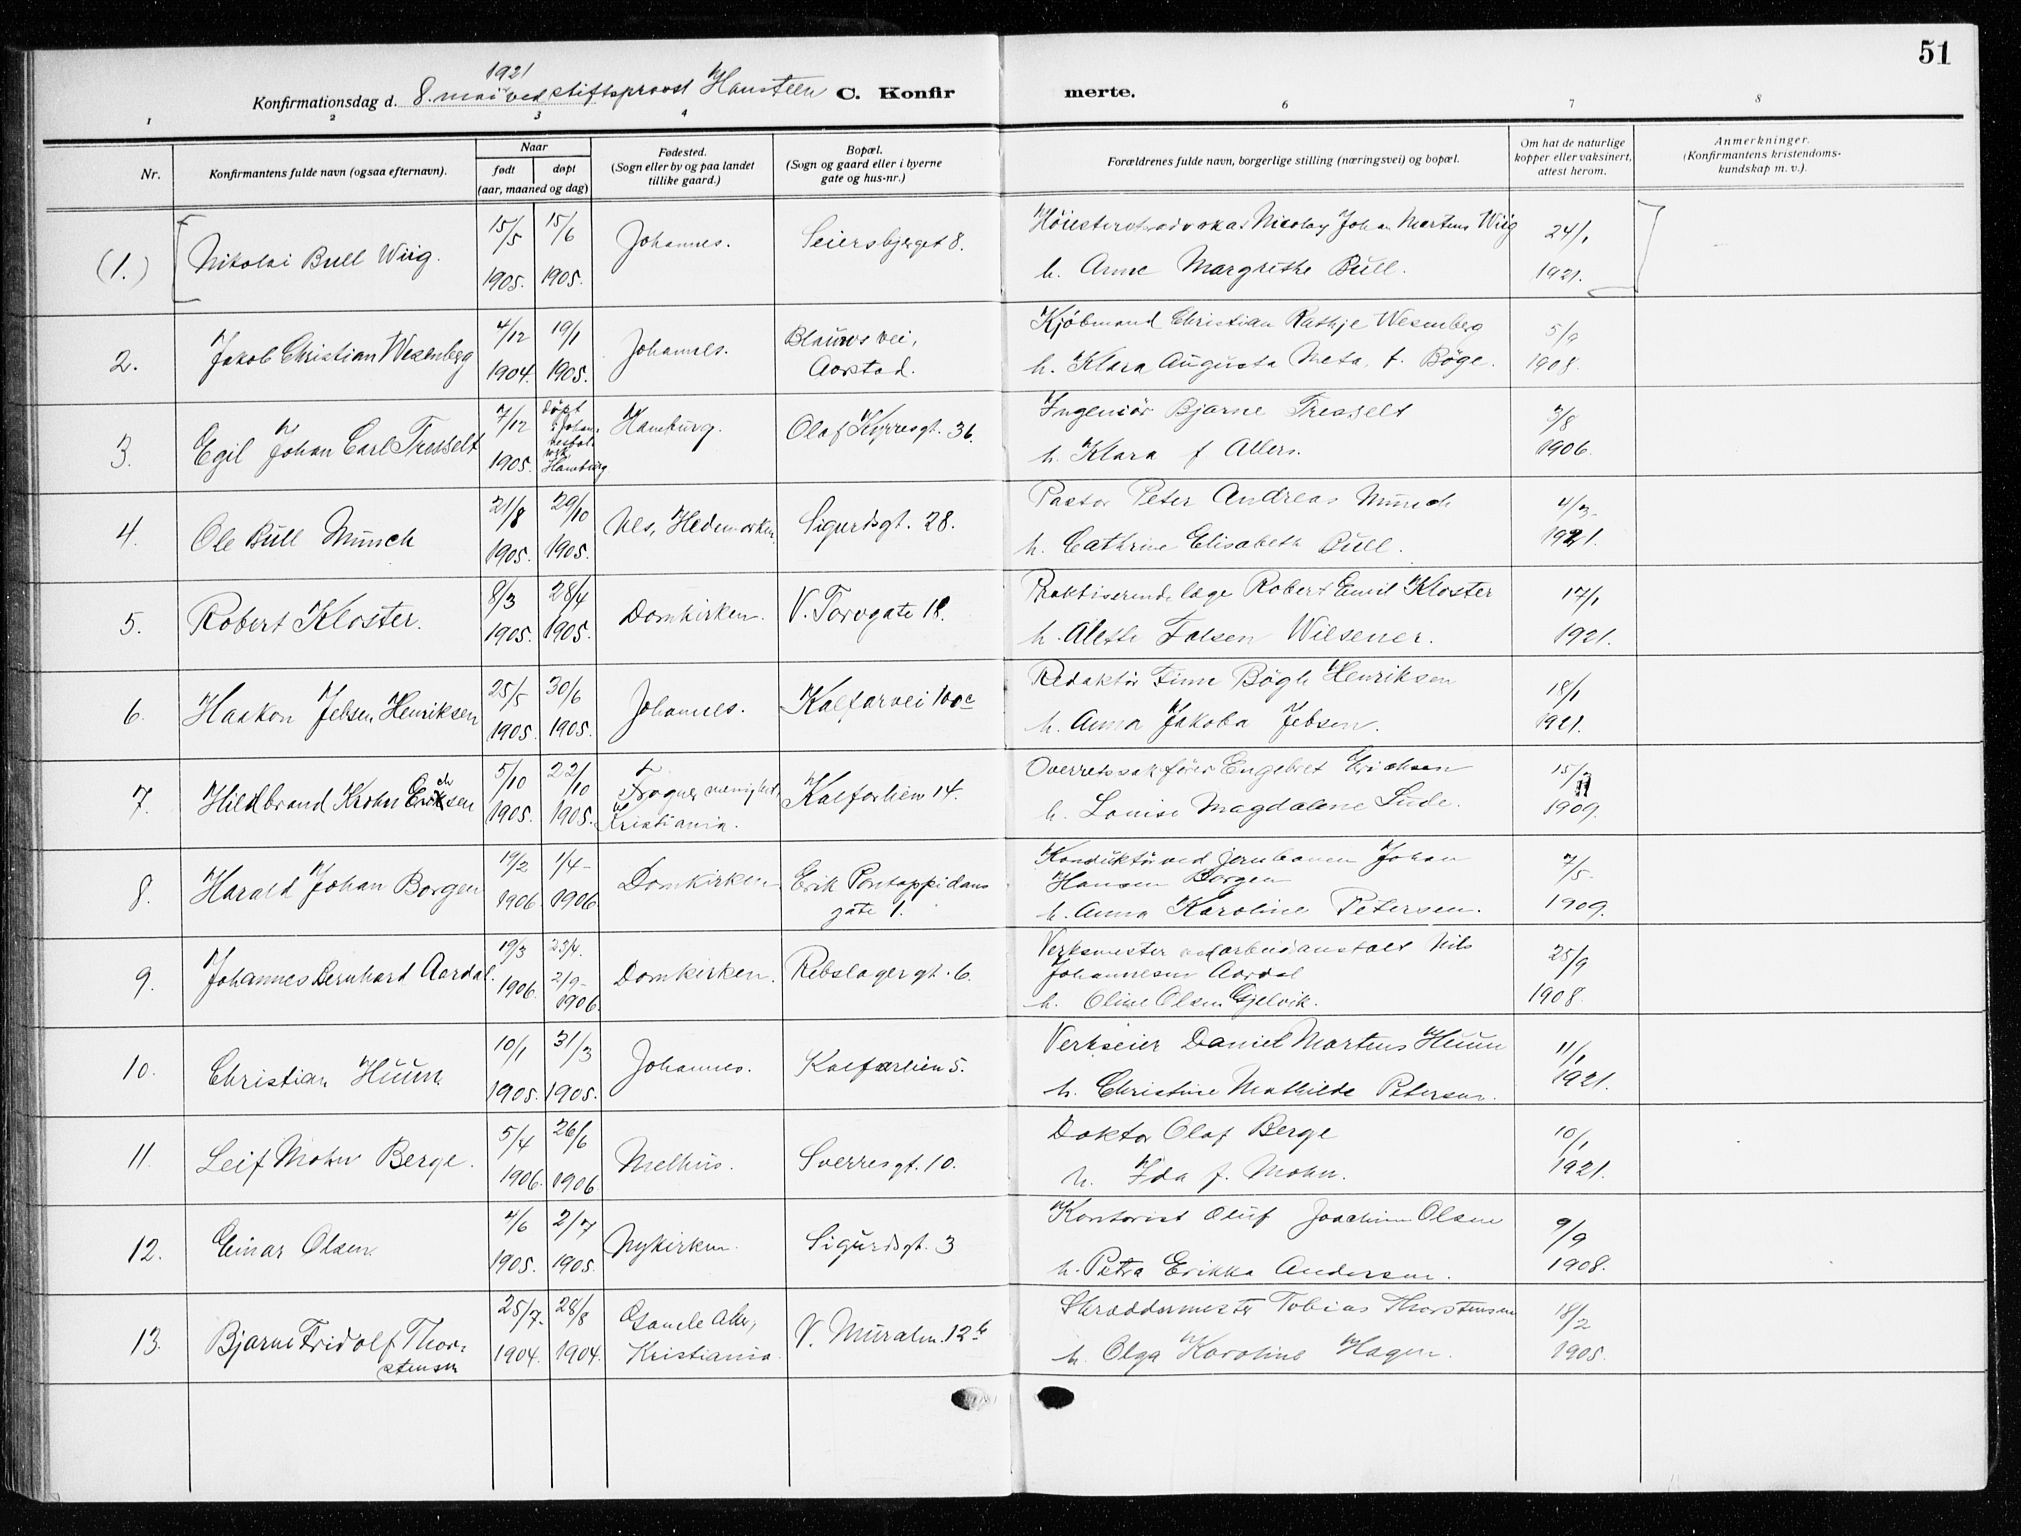 51
1921
Konfirmationsdag d. 8. mai ved stiftsprovst Hansteen C. Konfirmerte.
1 2 3 4 6 7 8
Nr. Konfirmantens fulde navn (ogsaa efternavn). Naar født døpt (aar, maaned og dag) Fødested. (Sogn eller by og paa landet tillike gaard.) Bopæl. (Sogn og gaard eller i byerne gate og hus-nr.) Forældrenes fulde navn, borgerlige stilling (næringsvei) og bopæl. Om hat de naturlige kopper eller vaksinert, attest herom. Anmerkninger. (Konfirmantens kristendomskundskap m. v.).
(1.) Nikolai Bull Wiig. 15/5 1905. 15/6 1905. Johannes. Seiersbjerget 8. Høiesteretsadvokat Nicolay Johan Martens Wiig 24/1 1921.
h. Anne Margrethe Bull.
2. Jakob Christian Wesenberg 4/12 1904. 19/1 1905. Johannes. Blauws vei, Aarstad. Kjöbmand Christian Rathje Wesenberg 5/9 1908.
h. Klara Augusta Meta, f. Böge.
3. Egil Johan Carl Tresselt 7/12 1905. døpt i Johan. Hamburg Hamburg. Olaf Kyrresgt. 36. Ingeniör Bjarne Tresselt 3/8 1906.
h. Klara f Allers.
4. Ole Bull Munch 21/8 1905. 29/10 1905. Nes, Hedemarken Sigurdsgt. 28. Pastor Peter Andreas Munch 4/3 1921.
h. Cathrine Elisabeth Bull.
5. Robert Kloster. 8/3 1905. 28/4 1905. Domkirken. V. Torvgate 18. Praktiserende læge Robert Emil Kloster 17/1 1921.
h. Alette Falsen Wilsener.
6. Haakon Jebsen Henriksen 25/5 1905. 30/6 1905. Johannes. Kalfarvei 100c Redaktör Finn Bögh Henriksen 18/1 1921.
h. Anna Jakoba Jebsen.
7. Hildbrand Krohn Erichsen 5/10 1905. 22/10 1905. Frogner menighet Kristiania. Kalfarlien 14. Overretssakförer Engebret Erichsen 15/11 1909.
h. Louise Magdalene Lude.
8. Harald Johan Borgen 19/2 1906. 1/4 1906. Domkirken Erik Pontoppidans gate 1. Konduktör ved jernbanen Johan 7/5 1909.
Hansen Borgen
h. Anna Karoline Petersen.
9. Johannes Bernhard Aardal. 19/3 1906. 23/4. 2/9 1906. Domkirken. Rebslagergt. 6. Verksmester ved arbeidsanstalt Nils 25/9 1908.
Johannesen Aardal
h. Oline Olsen Gjelvik.
10. Christian Huun 10/1 1905. 31/3 1905. Johannes. Kalfarlien 5. Verkseier Daniel Martens Huun 11/1 1921.
h. Christine Mathilde Petersen.
11. Leif Mohn Berge. 5/4 1906. 26/6 1906 Melhus. Sverresgt. 10. Doktor Olaf Berge 10/1 1921.
h. Ida f. Mohn.
12. Einar Olsen. 4/6 1905. 2/7 1905. Nykirken. Sigurdsgt. 3 Kontorist Oluf Joachim Olsen 9/9 1908.
h. Petra Erikka Andersen.
13. Bjarne Fridolf Thorstensen 25/7 1904. 28/8 1904. Gamle Aker, Kristiania. V. Muralm. 12b Skræddermester Tobias Thorstensen 18/2 1905.
h. Olga Karoline Hagen.